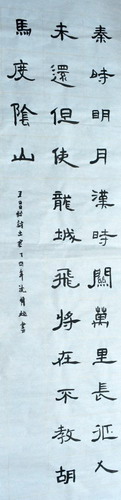 秦時明月漢時關萬里長征人
未還但使龍城飛將在不教胡
馬度陰山
王昌齡詩出塞